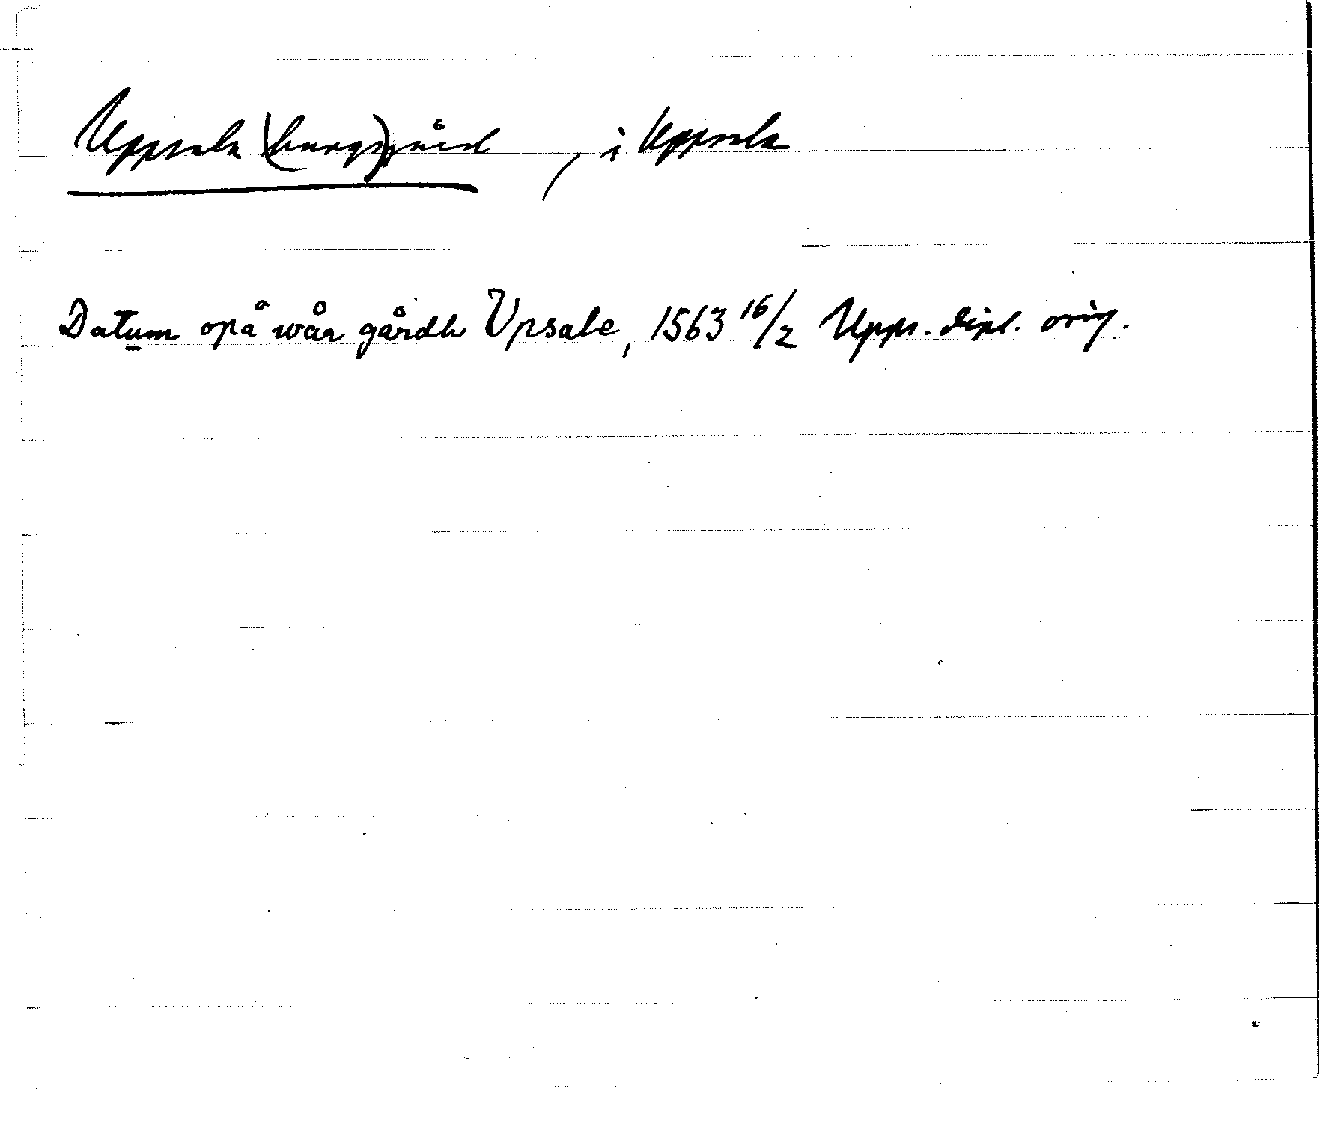 Uppsala (kungs)gård, i Uppsala
Datum opå wår gårdh Vpsale, 1563 16/2 Upps. dipl. orig.